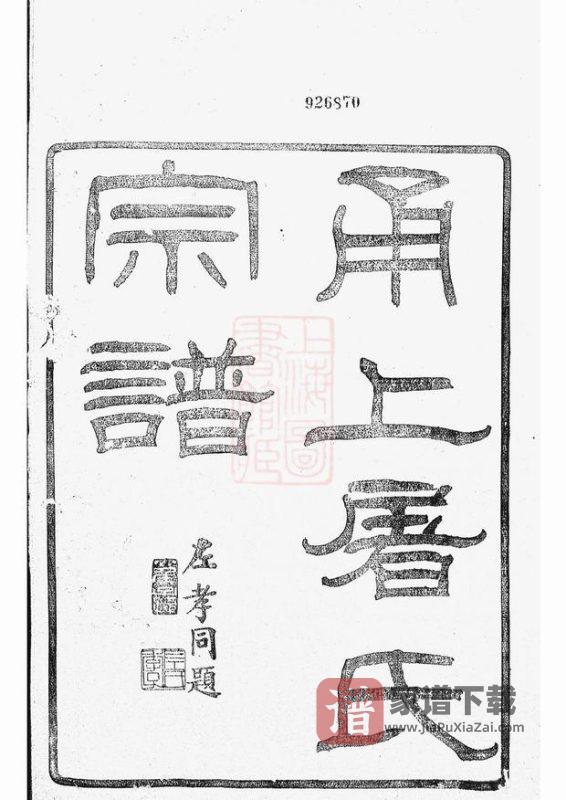 926870
甬上屠氏
宗譜
左孝同題
上海圖書館藏
譜 家谱下载
www.JiaRuXiaZai.com